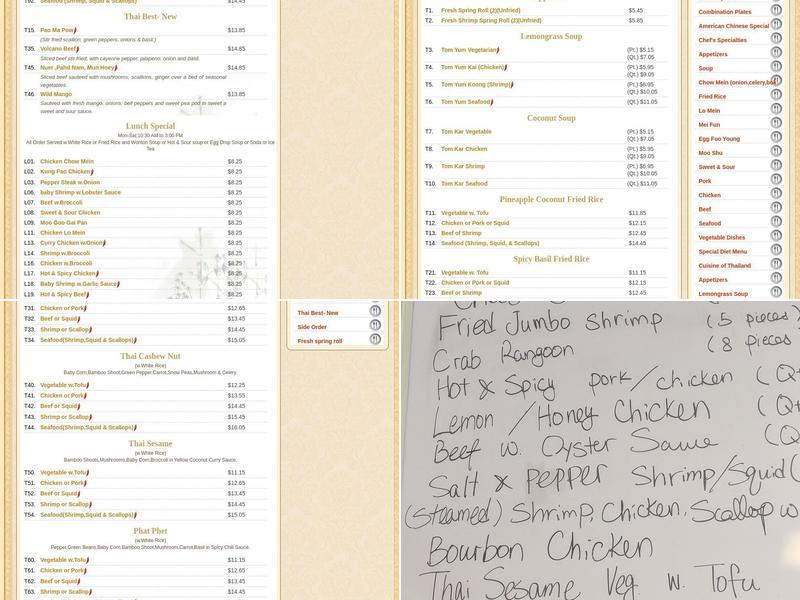 $14.45
Thai Best- New
T15. Pao Ma Pow $13.85
(Stir fried scallion, green peppers, onions & basil.)
T35. Volcano Beef $14.85
Sliced beef stir fried, with cayenne pepper, jalapeno, onion and basil.
T45. Nuer ,Pahd Nam, Mun Hoey $14.85
Sliced beef sauteed with mushrooms, scallions, ginger over a bed of seasonal
vegetables.
T46. Wild Mango $13.85
Sauteed with fresh mango, onions, bell peppers and sweet pea pod in sweet a
sweet and sour sauce.
Lunch Special
Mon-Sat:10:30 AM to 3:00 PM
All Order Served w.White Rice or Fried Rice and Wonton Soup or Hot & Sour soup or Egg Drop Soup or Soda or Ice
Tea
L01. Chicken Chow Mein $8.25
L02. Kung Pao Chicken $8.25
L03. Pepper Steak w.Onion $8.25
L06. baby Shrimp w.Lobster Sauce $8.25
L07. Beef w.Broccoli $8.25
L08. Sweet & Sour Chicken $8.25
L09. Moo Goo Gai Pan $8.25
L11. Chicken Lo Mein $8.25
L13. Curry Chicken w.Onion $8.25
L14. Shrimp w.Broccoli $8.25
L16. Chicken w.Broccoli $8.25
L17. Hot & Spicy Chicken $8.25
L18. Baby Shrimp w.Garlic Sauce $8.25
L19. Hot & Spicy Beef $8.25
T1. Fresh Spring Roll (2)(Unfried) $5.45
T2. Fresh Shrimp Spring Roll (2)(Unfried) $5.85
Lemongrass Soup
T3. Tom Yum Vegetarian (Pt.) $5.15
(Qt.) $7.05
T4. Tom Yum Kai (Chicken) (Pt.) $5.95
(Qt.) $9.05
T5. Tom Yum Koong (Shrimp) (Pt.) $6.95
(Qt.) $10.05
T6. Tom Yum Seafood (Qt.) $11.05
Coconut Soup
T7. Tom Kar Vegetable (Pt.) $5.15
(Qt.) $7.05
T8. Tom Kar Chicken (Pt.) $5.95
(Qt.) $9.05
T9. Tom Kar Shrimp (Pt.) $6.95
(Qt.) $10.05
T10. Tom Kar Seafood (Qt.) $11.05
Pineapple Coconut Fried Rice
T11. Vegetable w. Tofu $11.85
T12. Chicken or Pork or Squid $12.15
T13. Beef of Shrimp $12.45
T14. Seafood (Shrimp, Squid, & Scallops) $14.45
Spicy Basil Fried Rice
T21. Vegetable w. Tofu $11.15
T22. Chicken or Pork or Squid $12.15
T23. Beef or Shrimp $12.45
Combination Plates
American Chinese Special
Chef's Specialties
Appetizers
Soup
Chow Mein (onion,celery,bok
Fried Rice
Lo Mein
Mei Fun
Egg Foo Young
Moo Shu
Sweet & Sour
Pork
Chicken
Beef
Seafood
Vegetable Dishes
Special Diet Menu
Cuisine of Thailand
Appetizers
Lemongrass Soup
T31. Chicken or Pork $12.65
T32. Beef or Squid $13.45
T33. Shrimp or Scallop $14.45
T34. Seafood(Shrimp,Squid & Scallops) $15.05
Thai Cashew Nut
(w.White Rice)
Baby Corn,Bamboo Shoot,Green Pepper,Carrot,Snow Peas,Mushroom & Celery.
T40. Vegetable w.Tofu $12.25
T41. Chicken or Pork $13.55
T42. Beef or Squid $14.45
T43. Shrimp or Scallop $15.45
T44. Seafood(Shrimp,Squid & Scallops) $16.05
Thai Sesame
(w.White Rice)
Bamboo Shoots,Mushrooms,Baby Corn,Broccoli in Yellow Coconut Curry Sauce.
T50. Vegetable w.Tofu $11.15
T51. Chicken or Pork $12.65
T52. Beef or Squid $13.45
T53. Shrimp or Scallop $14.45
T54. Seafood(Shrimp,Squid & Scallops) $15.05
Phat Phet
(w.White Rice)
Pepper,Green Beans,Baby Corn,Bamboo Shoot,Mushroom,Carrot,Basil in Spicy Chili Sauce.
T60. Vegetable w.Tofu $11.15
T61. Chicken or Pork $12.65
T62. Beef or Squid $13.45
T63. Shrimp or Scallop $14.45
Thai Best- New
Side Order
Fresh spring roll
Fried Jumbo shrimp (5 pieces)
Crab Rangoon (8 pieces
Hot & Spicy pork/chicken (Q
Lemon /Honey Chicken (Q
Beef w. Oyster Sauce (Q
Salt & pepper Shrimp/Squid (
(Steamed) Shrimp, Chicken, Scallop w
Bourbon Chicken
Thai Sesame Veg. w. Tofu